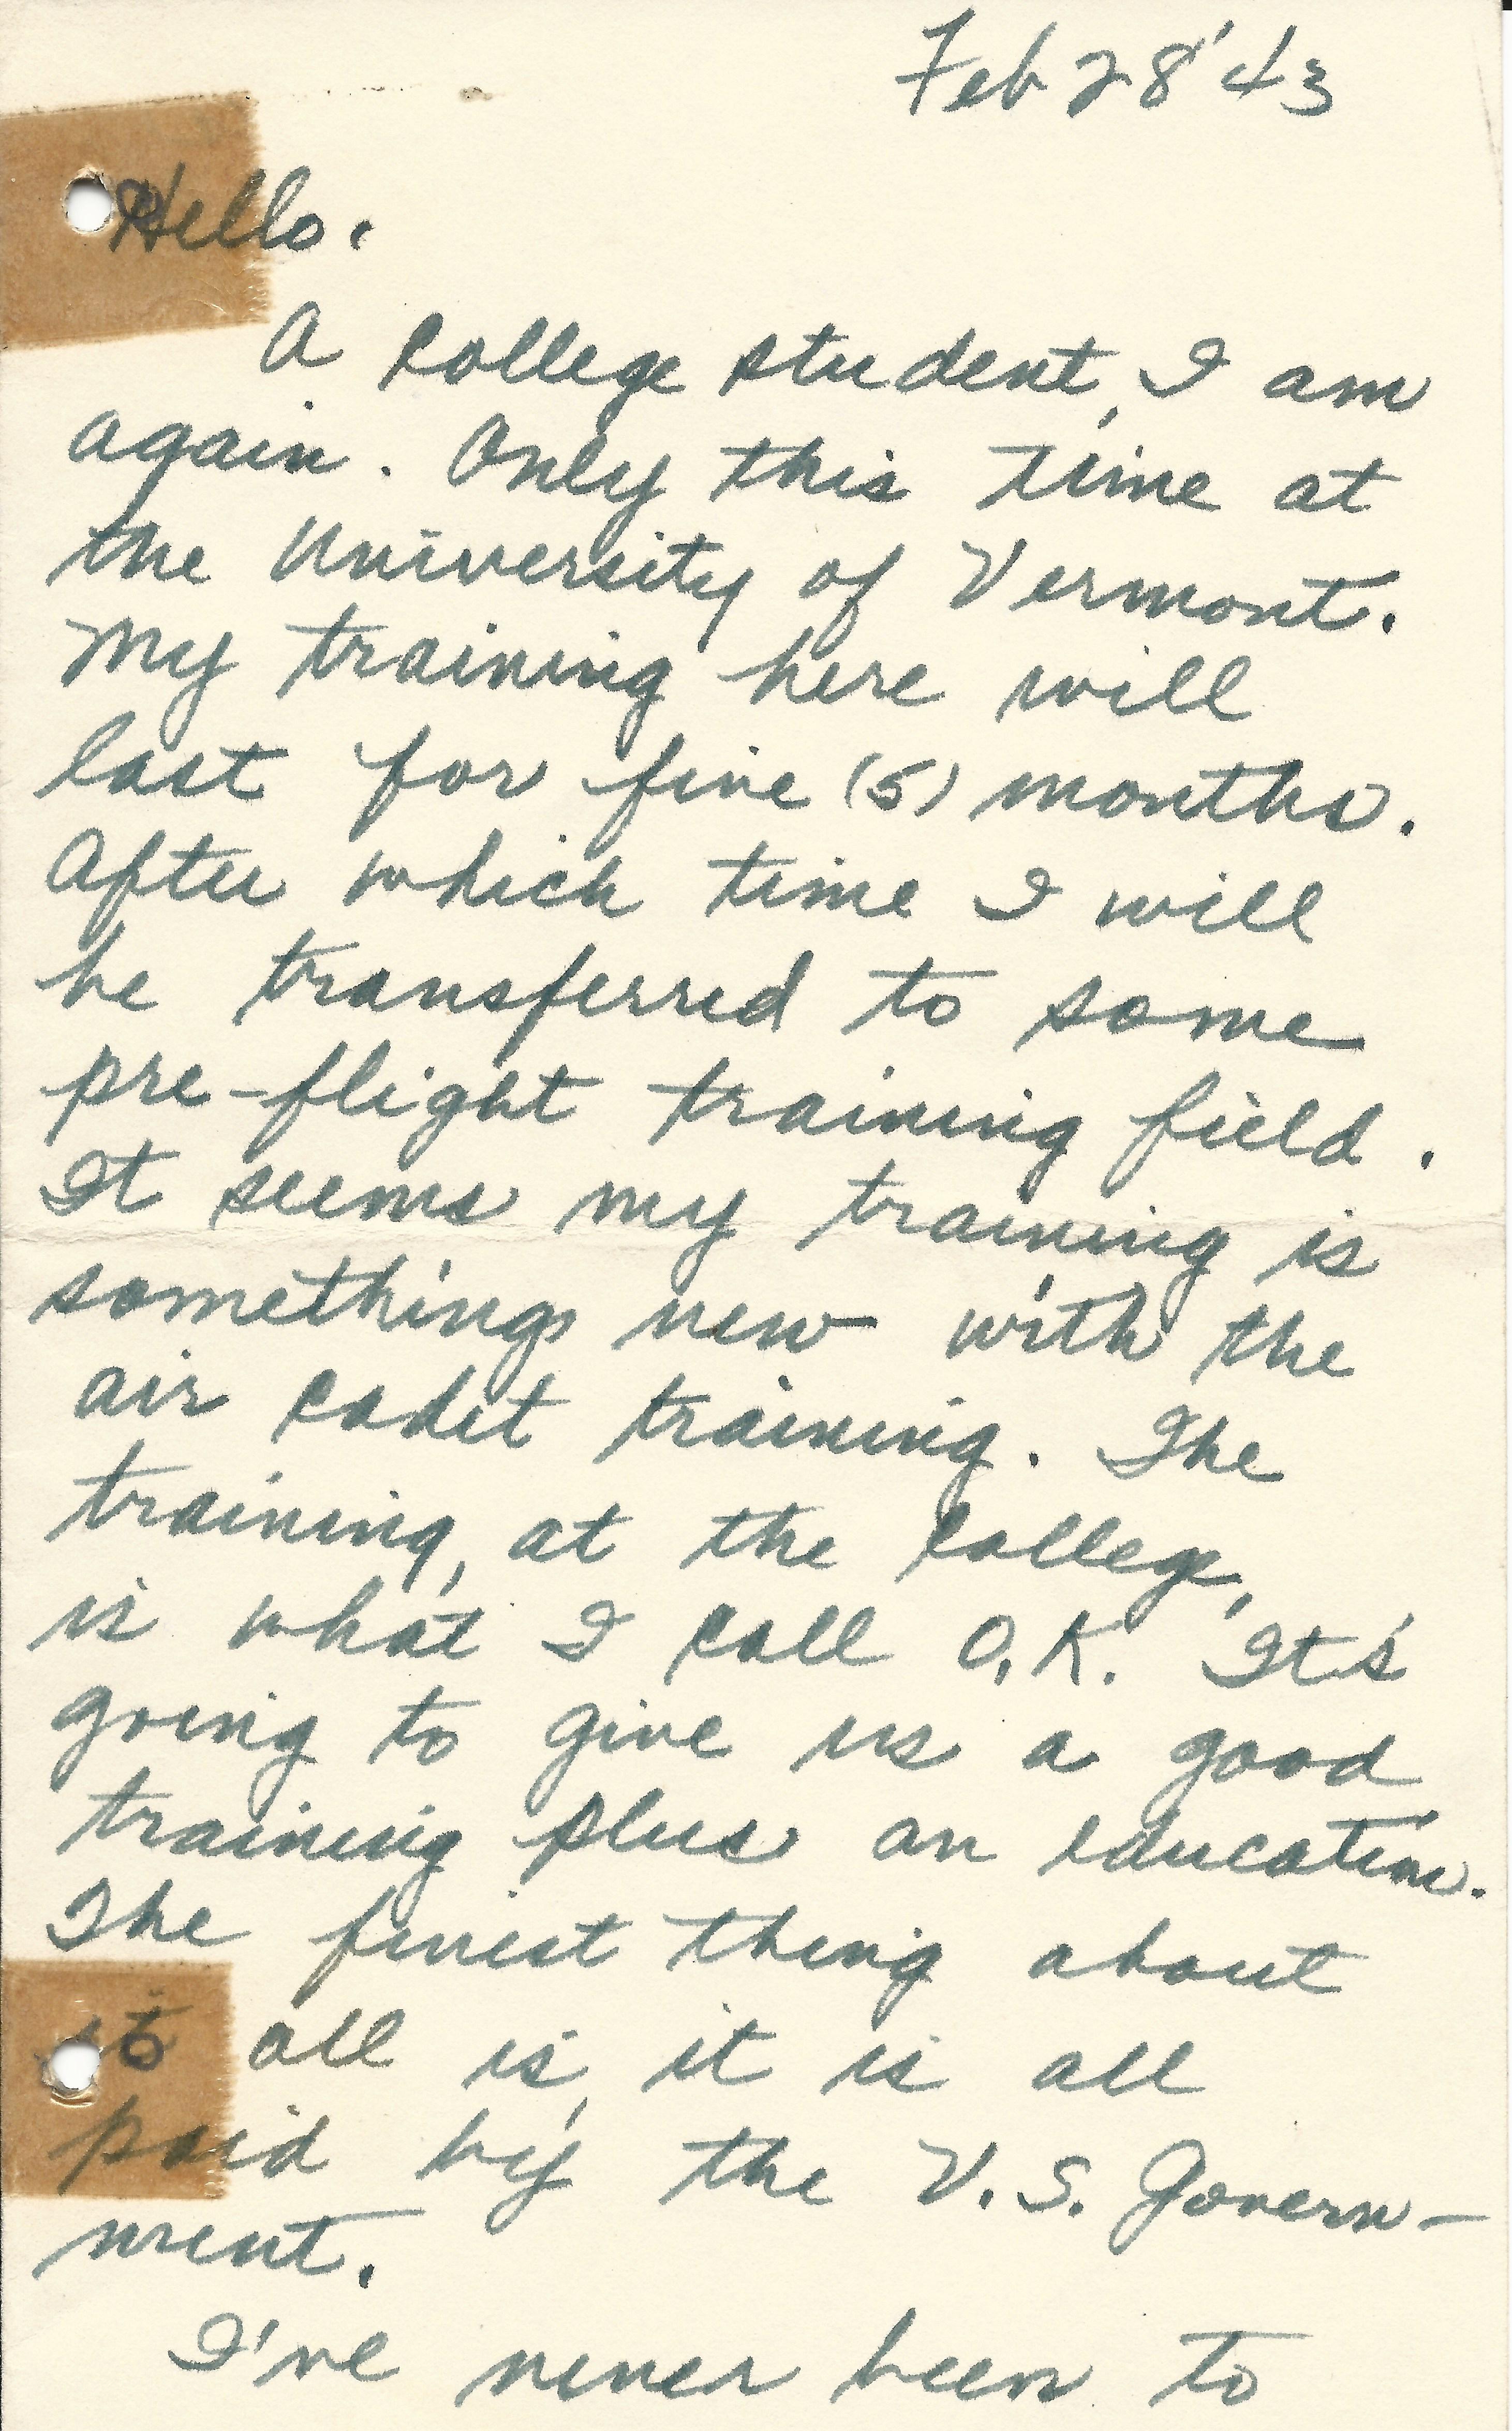 Feb 28 '43
Hello.
A college student, I am
again. Only this time at
the University of Vermont.
My training here will
last for five (5) months.
After which time I will
be transferred to some
pre-flight training field.
It seems my training is
something new with the
air cadet training. The
training, at the college,
is what I call O.K. It's
going to give us a good
training plus an education.
The finest thing about
it all is, it is all
paid by the U.S. Govern-
ment.
I've never been to